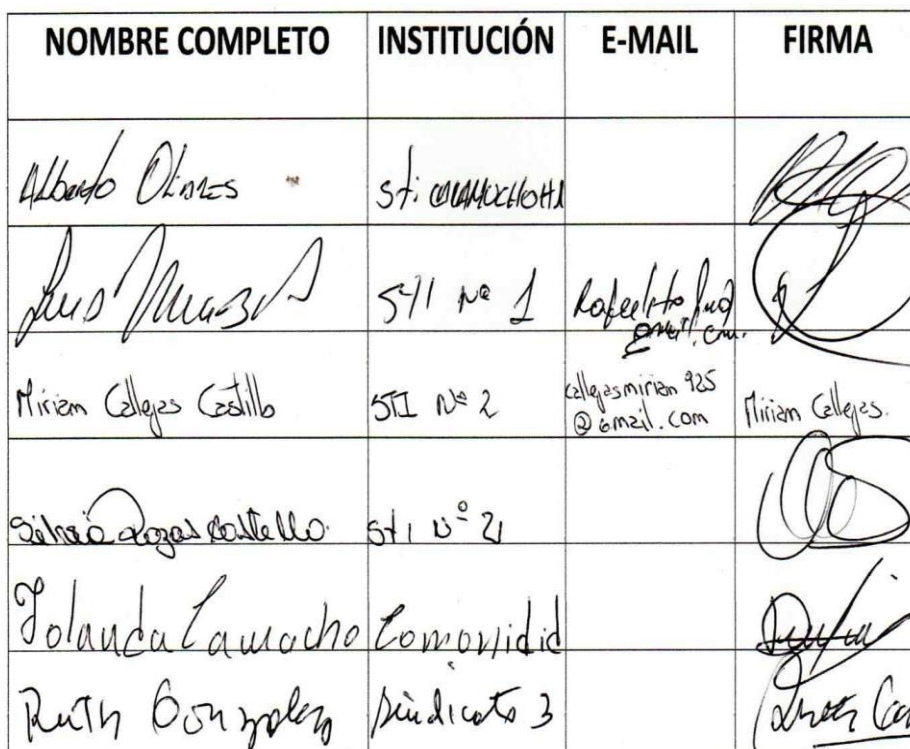 NOMBRE COMPLETO INSTITUCIÓN E-MAIL FIRMA
Alberto Olivares Sti
Luis STI Nº 1
gmail.com.
Miriam Callejas Castillo STI Nº 2 callejasmirian925
@gmail.com Miriam Callejas.
Silvia Rozas Castello. STI Nº 2
Yolanda Camacho Comonidid
Ruth Gonzales Sindicato 3